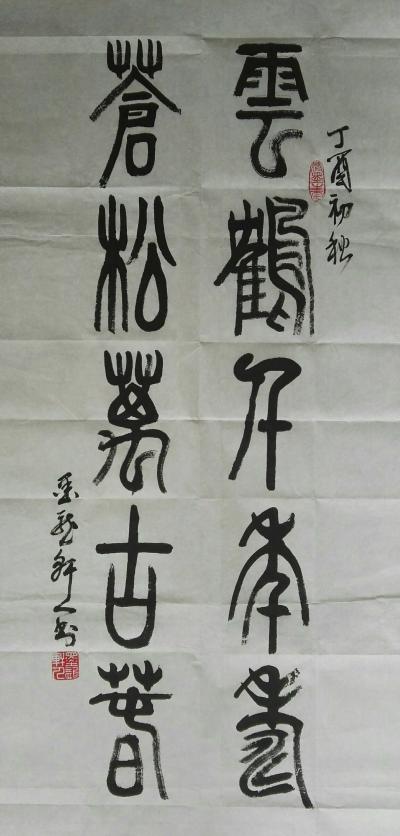 丁酉初秋
雲鶴千年壽
蒼松萬古春
墨龍軒人書